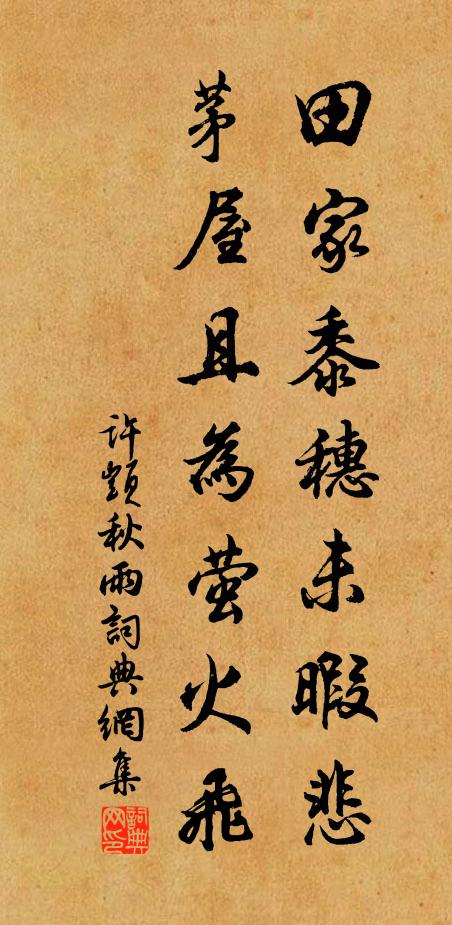 田家黍穗未暇悲
茅屋且為螢火飛
許顗秋雨詞典網集
詞典网印